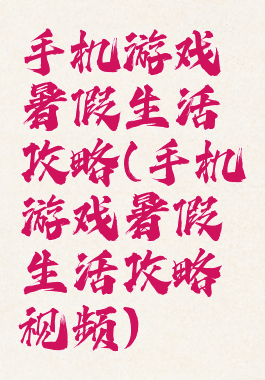 手机游戏
暑假生活
攻略(手机
游戏暑假
生活攻略
视频)